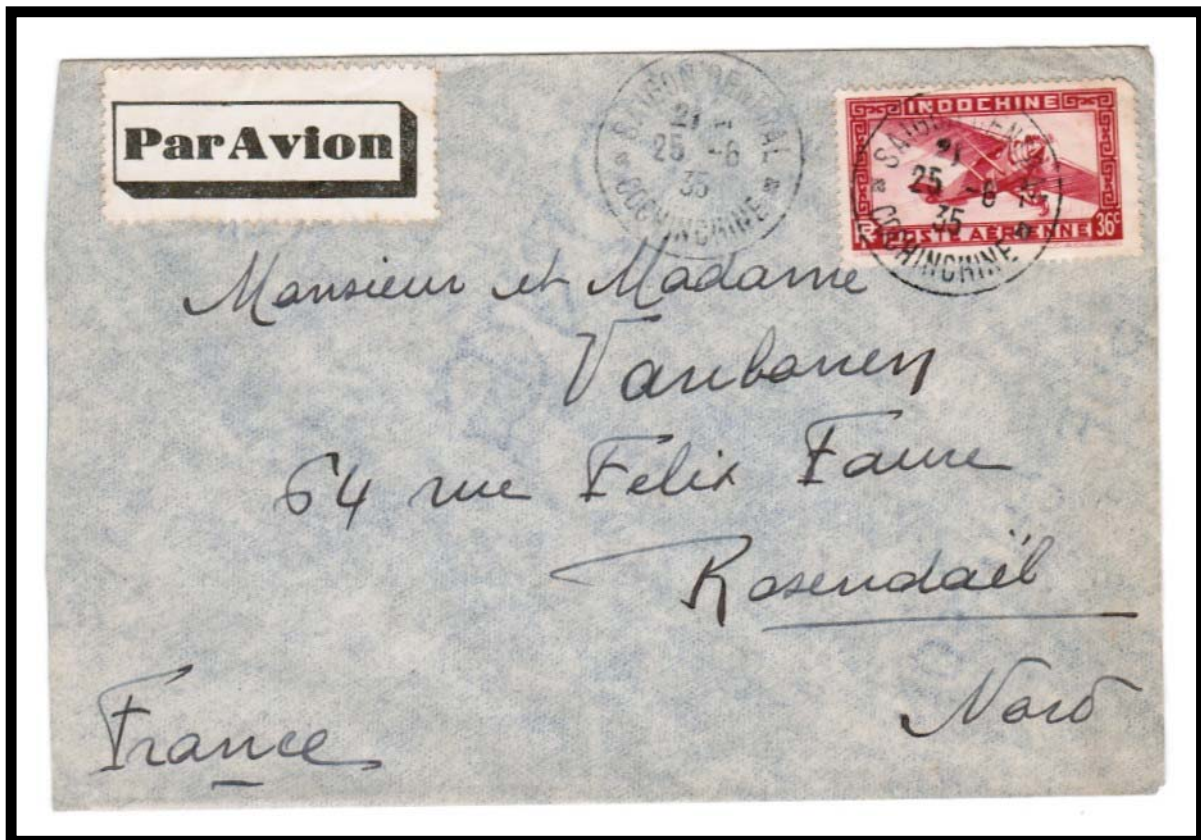 Par Avion
SAIGON CENTRAL
21
25 -6
35
COCHINCHINE
INDOCHINE
RF POSTE AÉRIENNE 36c
SAIGON CENTRAL
21
25 -6
35
COCHINCHINE
Monsieur et Madame
64 rue Félix Faure
Rosendaël
Nord
France